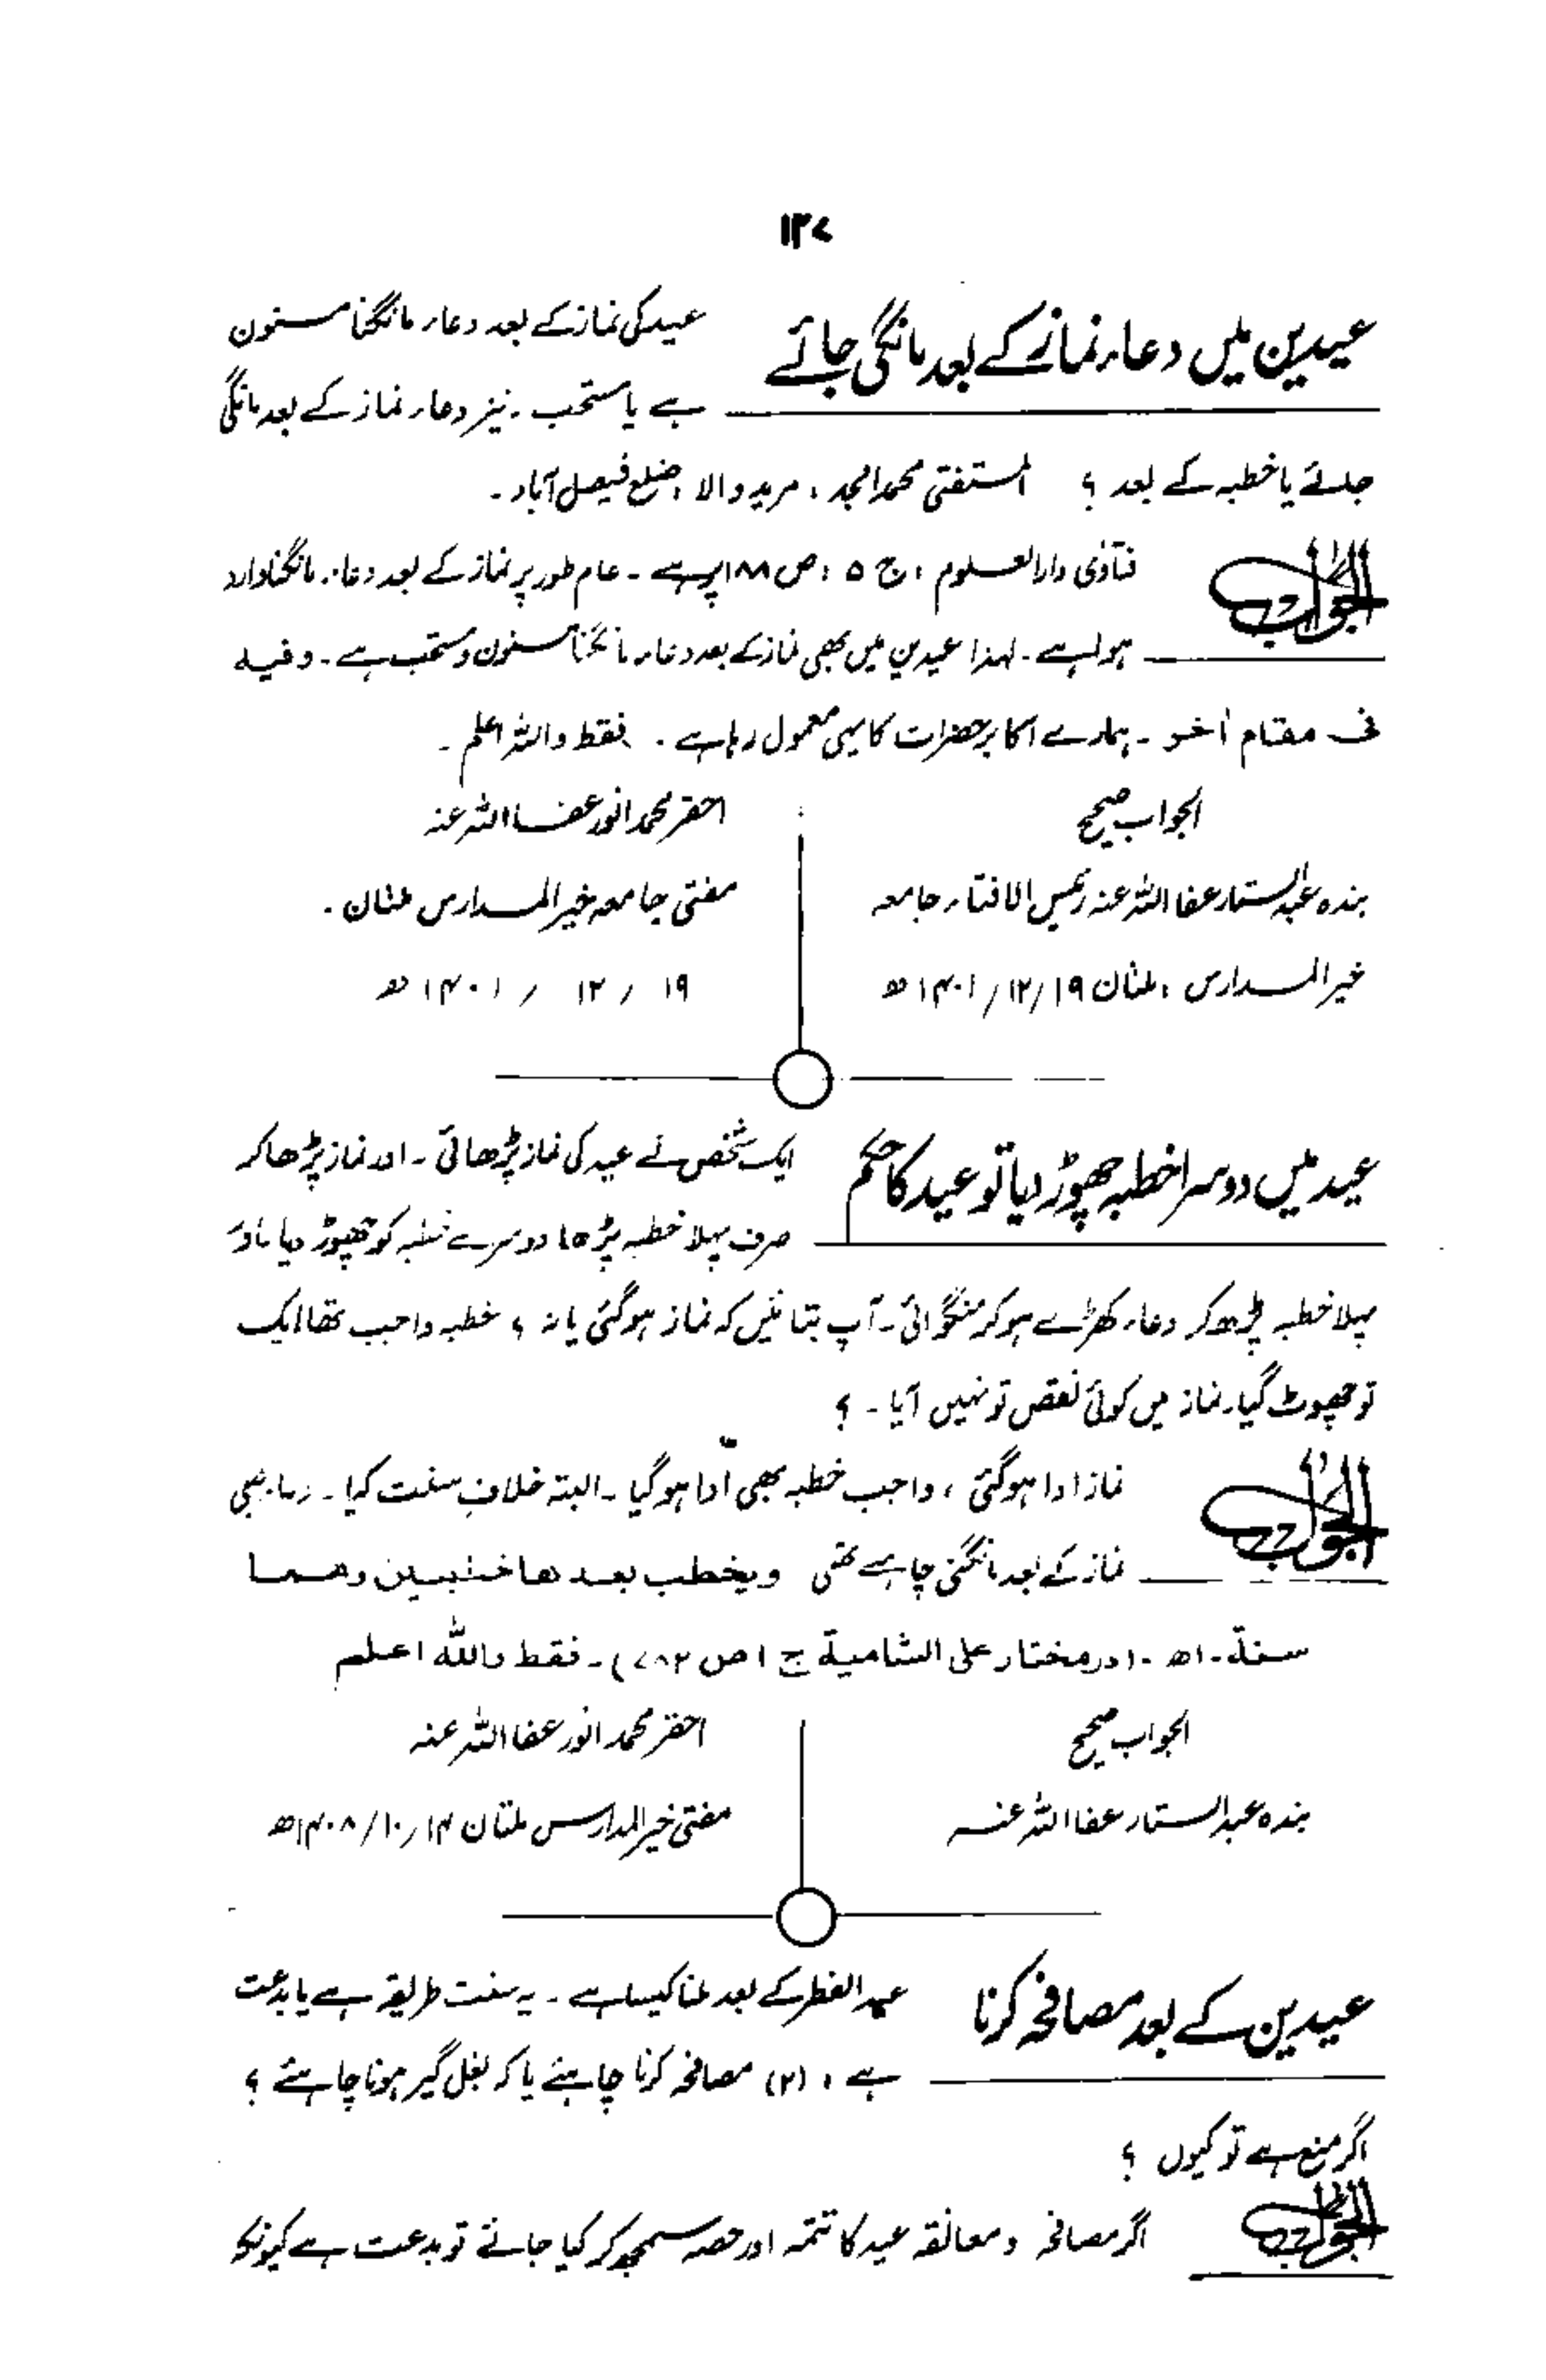 ۱۲۷
عیدین میں دعاء نماز کے بعد مانگی جائے
عید کی نماز کے بعد دعاء مانگنا مسنون
ہے یا مستحب ۔ نیز دعاء نماز کے بعد مانگی
جائے یا خطبہ کے بعد ؟ المستفتی محمد امجد ، مرید والا ، ضلع فیصل آباد ۔
الجواب
فتاوٰی دارالعلوم ، ج ۵ ، ص ۱۸۸ پر ہے ۔ عام طور پر نماز کے بعد دعاء مانگنا وارد
ہوا ہے ۔ لہذا عیدین میں بھی نماز کے بعد دعاء مانگنا مسنون و مستحب ہے ۔ وفیہ
فی مقام اٰخر ۔ ہمارے اکابر حضرات کا یہی معمول رہا ہے ۔ فقط واللہ اعلم ۔
الجواب صحیح
بندہ عبدالستار عفا اللہ عنہ رئیس الافتاء جامعہ
خیر المدارس ، ملتان ۱۹/۱۲/۱۴۰۱ھ
احقر محمد انور عفا اللہ عنہ
مفتی جامعہ خیر المدارس ملتان ۔
۱۹ / ۱۲ / ۱۴۰۱ھ
عید میں دوسرا خطبہ چھوڑ دیا تو عید کا حکم
ایک شخص نے عید کی نماز پڑھائی ۔ اور نماز پڑھا کر
صرف پہلا خطبہ پڑھا دوسرے خطبہ کو چھوڑ دیا
پہلا خطبہ پڑھ کر دعاء کھڑے ہو کر منگوائی ۔ آپ بتائیں کہ نماز ہو گئی یا نہ ؟ خطبہ واجب تھا ایک
تو چھوٹ گیا ۔ نماز میں کوئی نقص تو نہیں آیا ۔ ؟
الجواب
نماز ادا ہو گئی ، واجب خطبہ بھی ادا ہو گیا ۔ البتہ خلافِ سنت کیا ۔ دعا بھی
نماز کے بعد مانگنی چاہیے تھی ویخطب بعدھا خطبتین وھما
سنۃ ۔ اھ ۔ (درمختار علی الشامیۃ ج ۱ ص ۷۸۲) ۔ فقط واللہ اعلم
الجواب صحیح
بندہ عبدالستار عفا اللہ عنہ
احقر محمد انور عفا اللہ عنہ
مفتی خیر المدارس ملتان ۱۴/۱۰/۱۴۰۸ھ
عیدین کے بعد مصافحہ کرنا
عید الفطر کے بعد ملنا کیسا ہے ۔ یہ سنت طریقہ ہے یا بدعت
ہے ، (۲) مصافحہ کرنا چاہیئے یا کہ بغل گیر ہونا چاہیئے ؟
اگر منع ہے تو کیوں ؟
الجواب
اگر مصافحہ و معانقہ عید کا تتمہ اور حصہ سمجھ کر کیا جائے تو بدعت ہے کیونکہ